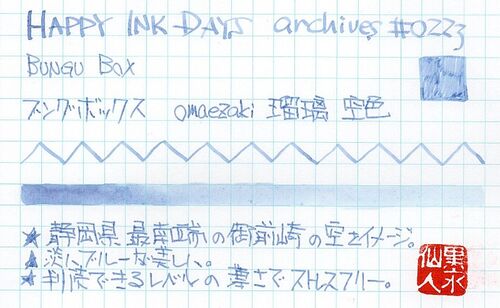 HAPPY INK DAYS archives #0223
BUNGU BOX
ブングボックス omaezaki 瑠璃空色
★ 静岡県最南端の御前崎の空をイメージ。
★ 淡いブルーが美しい。
★ 判読できるレベルの薄さでストレスフリー。
仙人